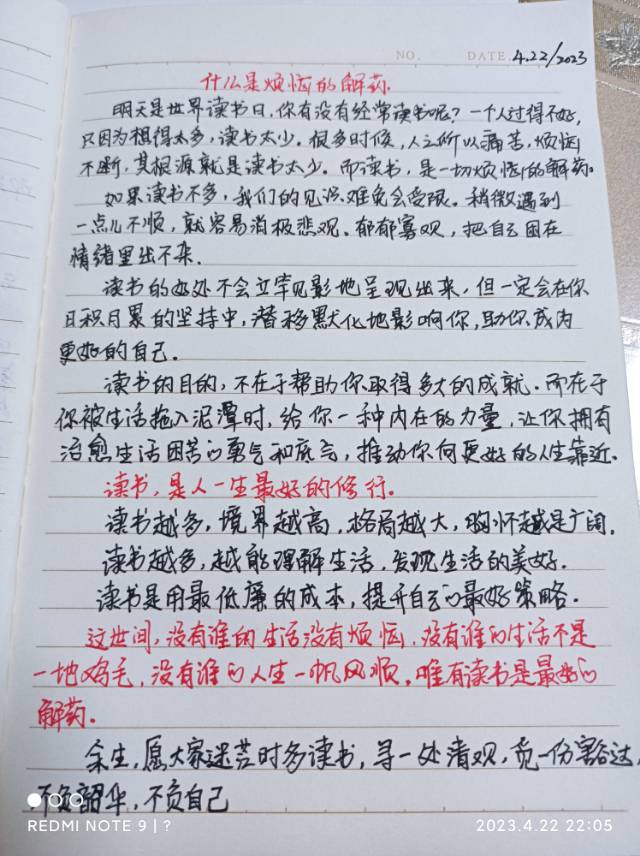 NO.
DATE. 4.22/2023
什么是烦恼的解药.
明天是世界读书日,你有没有经常读书呢?一个人过得不好,
只因为想得太多,读书太少。很多时候,人之所以痛苦,烦恼
不断,其根源就是读书太少。而读书,是一切烦恼的解药。
如果读书不多,我们的见识难免会受限。稍微遇到
一点儿不顺,就容易消极悲观。郁郁寡观,把自己困在
情绪里出不来.
读书的好处不会立竿见影地呈现出来,但一定会在你
日积月累的坚持中,潜移默化地影响你,助你成为
更好的自己.
读书的目的,不在于帮助你取得多大的成就.而在于
你被生活拖入泥潭时,给你一种内在的力量,让你拥有
治愈生活困苦的勇气和底气,推动你向更好的人生靠近.
读书,是人一生最好的修行.
读书越多,境界越高,格局越大,胸怀越是广阔.
读书越多,越能理解生活,发现生活的美好.
读书是用最低廉的成本,提升自己的最好策略.
这世间,没有谁的生活没有烦恼,没有谁的生活不是
一地鸡毛,没有谁的人生一帆风顺,唯有读书是最好的
解药.
余生,愿大家迷茫时多读书,寻一处清观,觅一份豁达,
不负韶华,不负自己
REDMI NOTE 9 | ?
2023.4.22 22:05